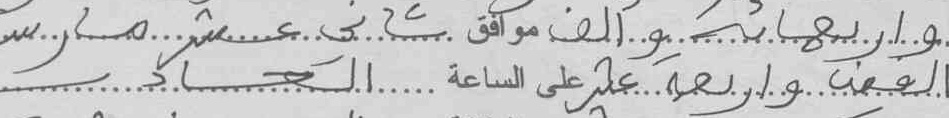 واربعمائة و الف موافق ثاني عشر مارس
الفين واربعة عشر على الساعة الحادية